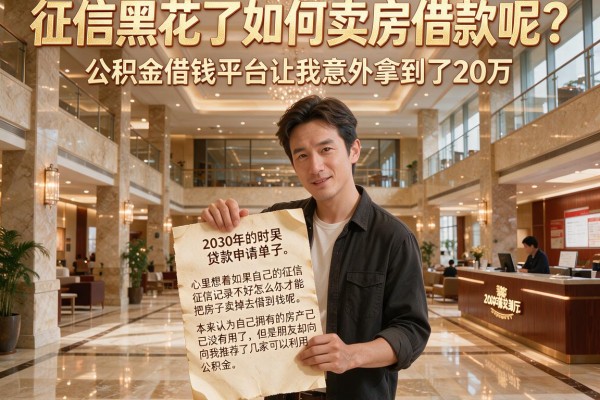 征信黑花了如何卖房借款呢？
公积金借钱平台让我意外拿到了20万
2030年的时吴
贷款申请单子。
心里想着如果自己的征信
征信记录不好怎么办才能
把房子卖掉去借到钱呢。
本来认为自己拥有的房产己
己没有用了，但是朋友却向
向我推荐了几家可以利用
公积金。